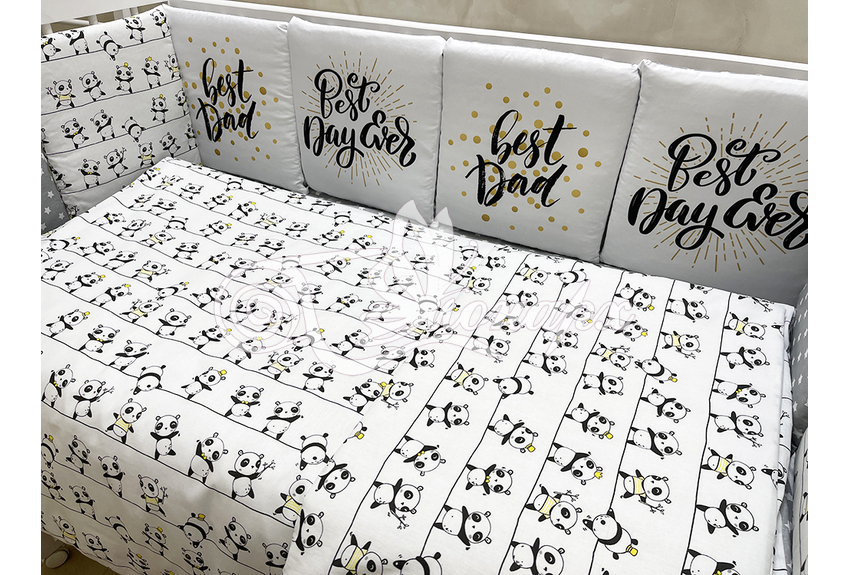 best
Dad
Best
Day Ever
best
Dad
Best
Day Ever